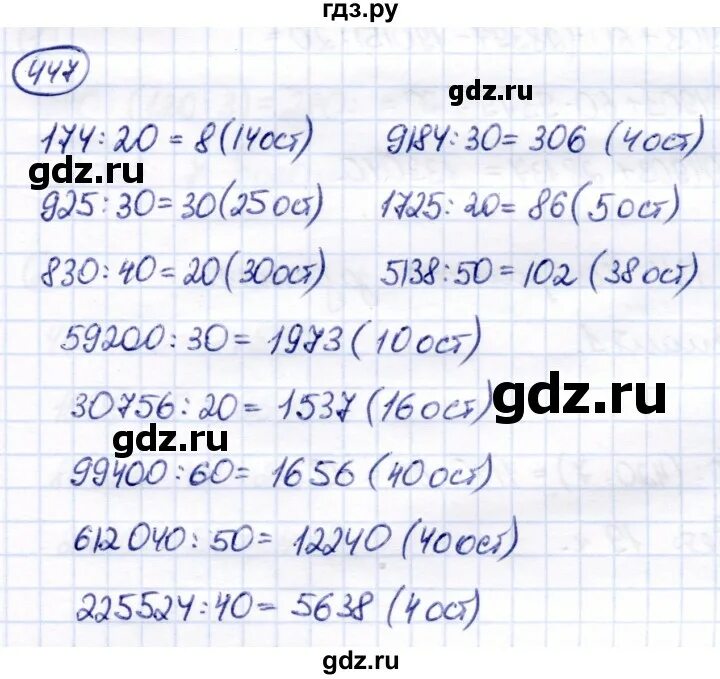 гдз.ру
447
gdz.ru
174 : 20 = 8 (14 ост) 9184 : 30 = 306 (4 ост)
gdz.ru
925 : 30 = 30 (25 ост) 1725 : 20 = 86 (5 ост)
830 : 40 = 20 (30 ост) 5138 : 50 = 102 (38 ост)
59200 : 30 = 1973 (10 ост)
30756 : 20 = 1537 (16 ост)
gdz.ru
gdz.ru
99400 : 60 = 1656 (40 ост)
612040 : 50 = 12240 (40 ост)
225524 : 40 = 5638 (4 ост)
gdz.ru